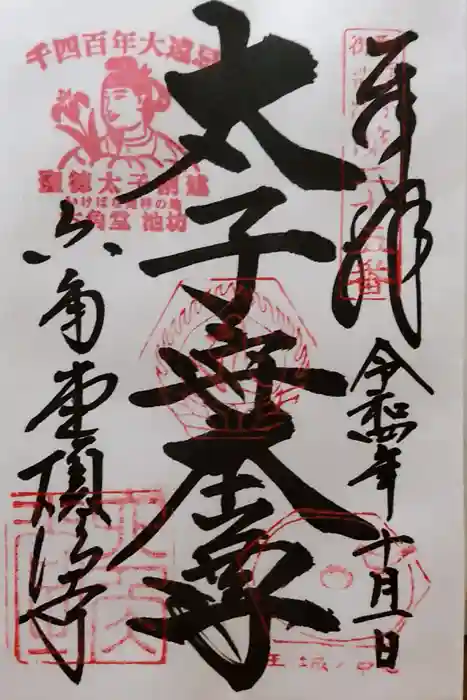 奉拝
令和四年十月一日
太子守本尊
千四百年大遠忌
聖徳太子創建
いけばな発祥の地
六角堂 池坊
六角堂頂法寺